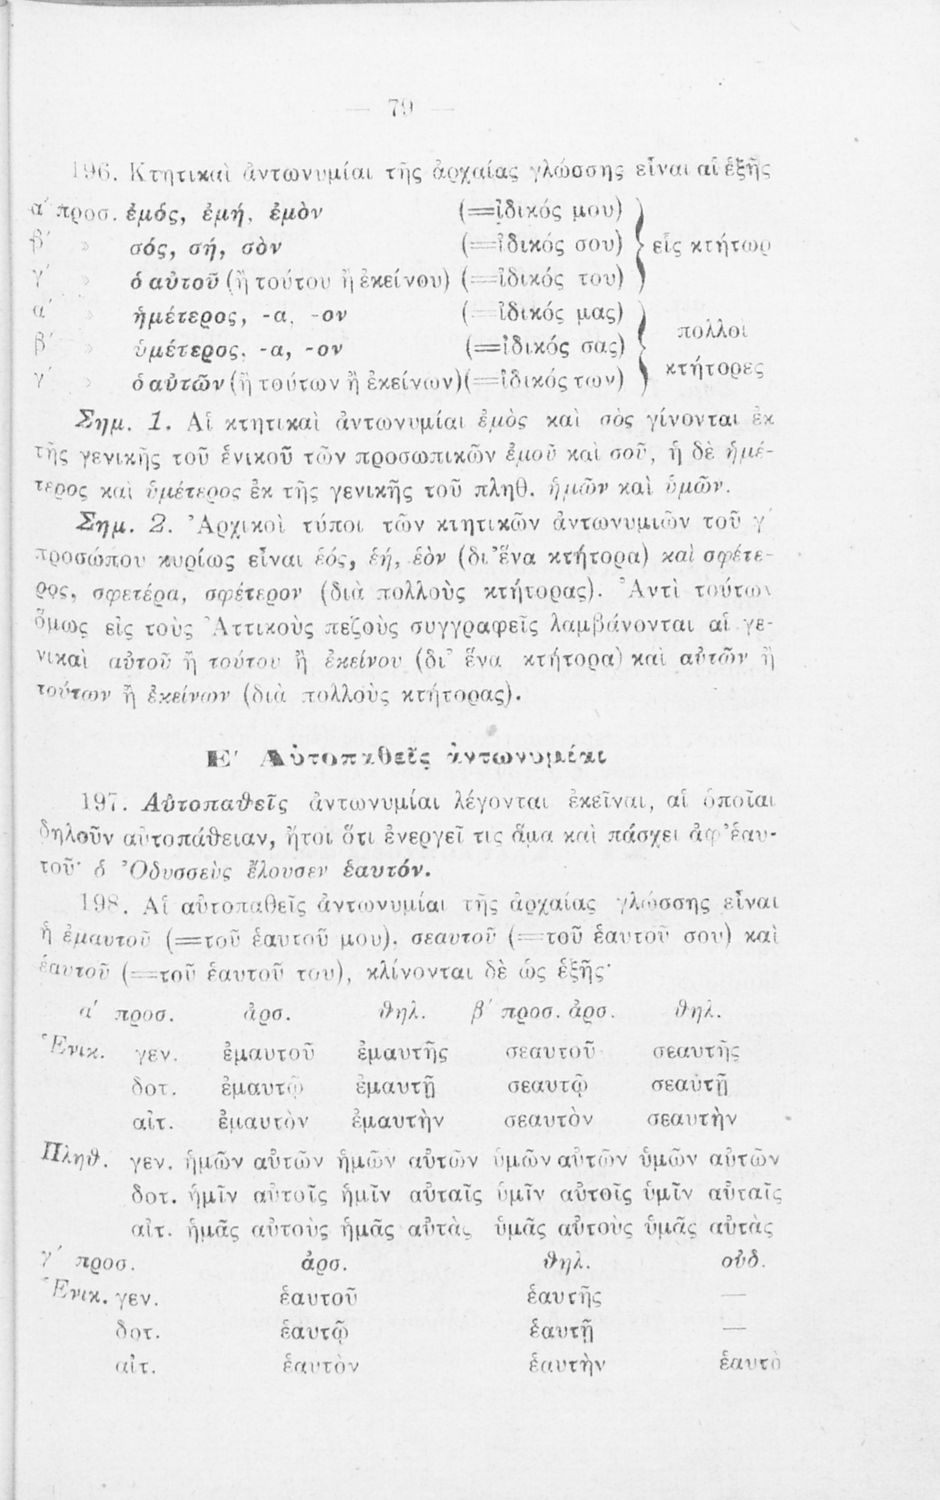 — 79 —
196. Κτητικαὶ ἀντωνυμίαι τῆς ἀρχαίας γλώσσης εἶναι αἱ ἑξῆς
α΄ προσ. ἐμός, ἐμή, ἐμὸν (=ἰδικός μου)
β΄ » σός, σή, σὸν (=ἰδικός σου) εἷς κτήτωρ
γ΄ » ὁ αὐτοῦ (ἢ τούτου ἢ ἐκείνου) (=ἰδικός του)
α΄ ἡμέτερος, -α, -ον (=ἰδικός μας)
πολλοὶ
β΄ » ὑμέτερος, -α, -ον (=ἰδικός σας)
κτήτορες
γ΄ » ὁ αὐτῶν (ἢ τούτων ἢ ἐκείνων)(=ἰδικός των)
Σημ. 1. Αἱ κτητικαὶ ἀντωνυμίαι ἐμὸς καὶ σὸς γίνονται ἐκ
τῆς γενικῆς τοῦ ἑνικοῦ τῶν προσωπικῶν ἐμοῦ καὶ σοῦ, ἡ δὲ ἡμέ-
τερος καὶ ὑμέτερος ἐκ τῆς γενικῆς τοῦ πληθ. ἡμῶν καὶ ὑμῶν.
Σημ. 2. Ἀρχικοὶ τύποι τῶν κτητικῶν ἀντωνυμιῶν τοῦ γ΄
προσώπου κυρίως εἶναι ἑός, ἑή, ἑὸν (δι᾽ ἕνα κτήτορα) καὶ σφέτε-
ρος, σφετέρα, σφέτερον (διὰ πολλοὺς κτήτορας). Ἀντὶ τούτων
ὅμως εἰς τοὺς Ἀττικοὺς πεζοὺς συγγραφεῖς λαμβάνονται αἱ γε-
νικαὶ αὐτοῦ ἢ τούτου ἢ ἐκείνου (δι᾽ ἕνα κτήτορα) καὶ αὐτῶν ἢ
τούτων ἢ ἐκείνων (διὰ πολλοὺς κτήτορας).
Ε΄ Αὐτοπαθεῖς ἀντωνυμίαι
197. Αὐτοπαθεῖς ἀντωνυμίαι λέγονται ἐκεῖναι, αἱ ὁποῖαι
δηλοῦν αὐτοπάθειαν, ἤτοι ὅτι ἐνεργεῖ τις ἅμα καὶ πάσχει ἀφ᾽ ἑαυ-
τοῦ· ὁ Ὀδυσσεὺς ἔλουσεν ἑαυτόν.
198. Αἱ αὐτοπαθεῖς ἀντωνυμίαι τῆς ἀρχαίας γλώσσης εἶναι
ἡ ἐμαυτοῦ (=τοῦ ἑαυτοῦ μου), σεαυτοῦ (=τοῦ ἑαυτοῦ σου) καὶ
ἑαυτοῦ (=τοῦ ἑαυτοῦ του), κλίνονται δὲ ὡς ἑξῆς·
α΄ προσ. ἀρσ. θηλ. β΄ προσ. ἀρσ. θηλ.
Ἑνικ. γεν. ἐμαυτοῦ ἐμαυτῆς σεαυτοῦ σεαυτῆς
δοτ. ἐμαυτῷ ἐμαυτῇ σεαυτῷ σεαυτῇ
αἰτ. ἐμαυτὸν ἐμαυτὴν σεαυτὸν σεαυτὴν
Πληθ. γεν. ἡμῶν αὐτῶν ἡμῶν αὐτῶν ὑμῶν αὐτῶν ὑμῶν αὐτῶν
δοτ. ἡμῖν αὐτοῖς ἡμῖν αὐταῖς ὑμῖν αὐτοῖς ὑμῖν αὐταῖς
αἰτ. ἡμᾶς αὐτοὺς ἡμᾶς αὐτὰς ὑμᾶς αὐτοὺς ὑμᾶς αὐτὰς
γ΄ προσ. ἀρσ. θηλ. οὐδ.
Ἑνικ. γεν. ἑαυτοῦ ἑαυτῆς —
δοτ. ἑαυτῷ ἑαυτῇ —
αἰτ. ἑαυτὸν ἑαυτὴν ἑαυτὸ